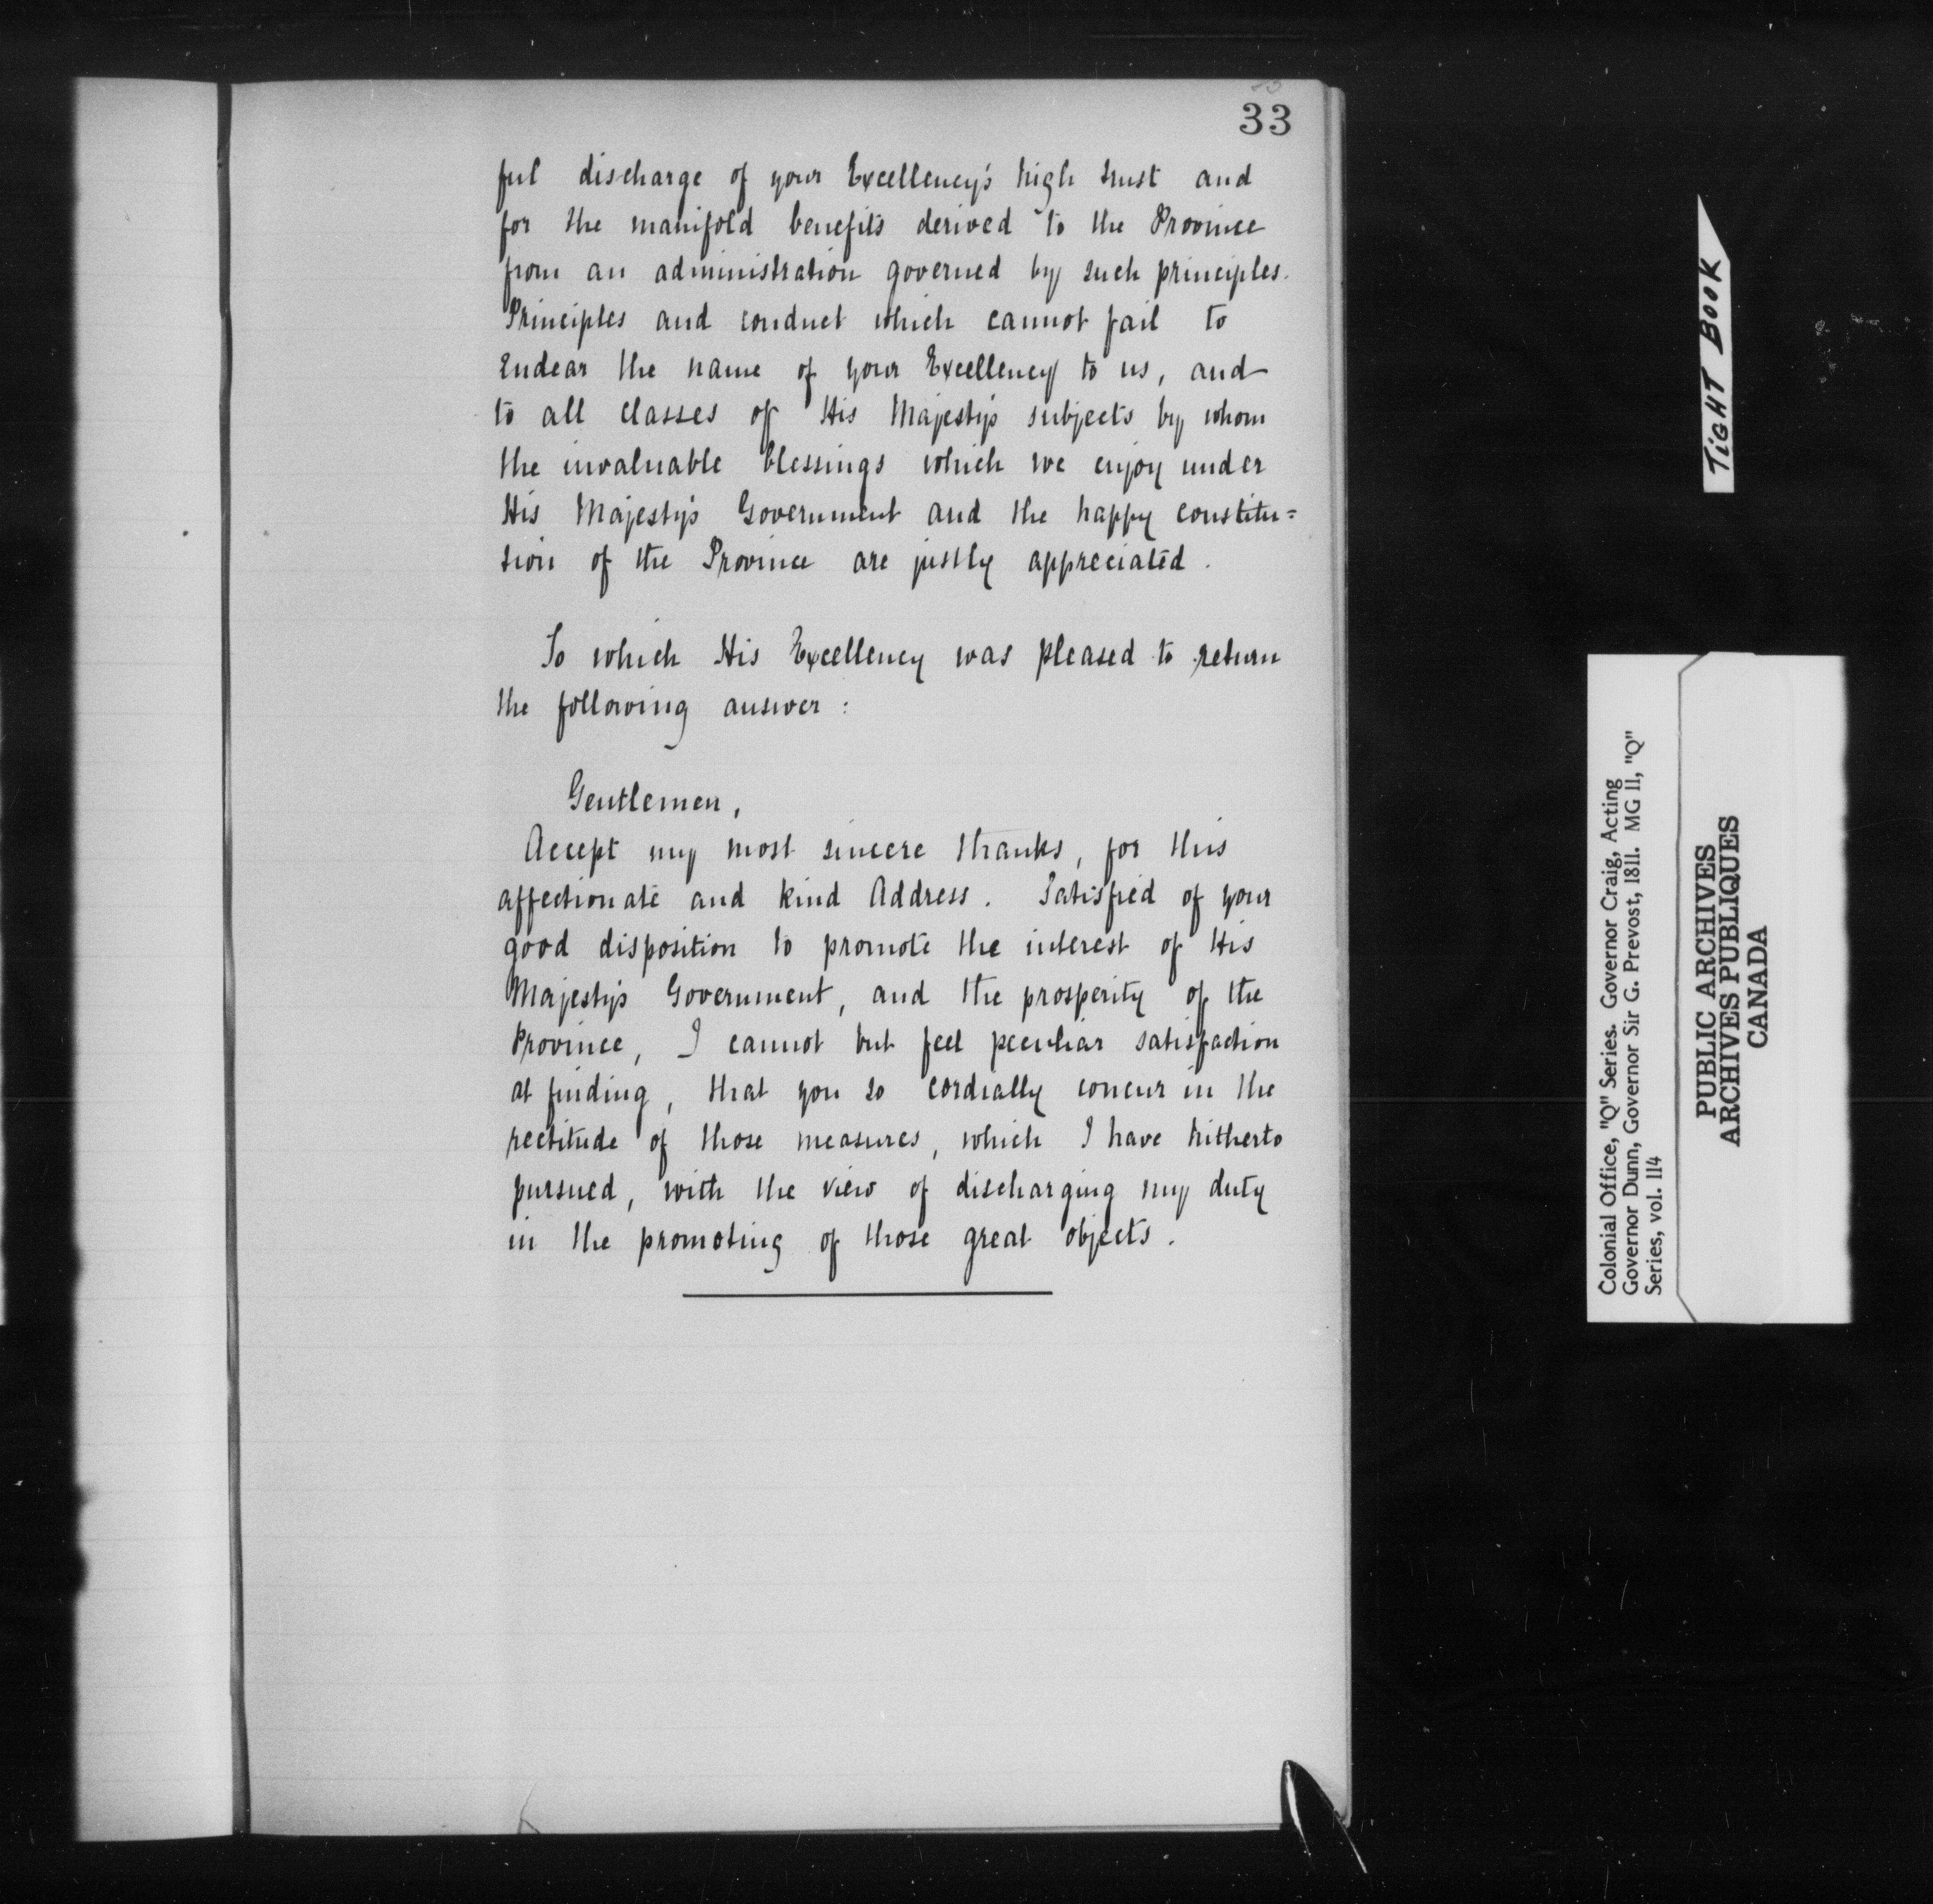 33
ful discharge of your Excellency's high trust and
for the manifold benefits derived to the Province
from an administration governed by such principles.
Principles and conduct which cannot fail to
endear the name of your Excellency to us, and
to all classes of His Majesty's subjects by whom
the invaluable blessings which we enjoy under
His Majesty's Government and the happy constitu=
tion of the Province are justly appreciated.
To which His Excellency was pleased to return
the following answer:
Gentlemen,
Accept my most sincere thanks, for this
affectionate and kind Address. Satisfied of your
good disposition to promote the interest of His
Majesty's Government, and the prosperity of the
Province, I cannot but feel peculiar satisfaction
at finding, that you so cordially concur in the
rectitude of those measures, which I have hitherto
pursued, with the view of discharging my duty
in the promoting of those great objects.
TIGHT BOOK
Colonial Office, "Q" Series. Governor Craig, Acting
Governor Dunn, Governor Sir G. Prevost, 1811. MG 11, "Q"
Series, vol. 114
PUBLIC ARCHIVES
ARCHIVES PUBLIQUES
CANADA